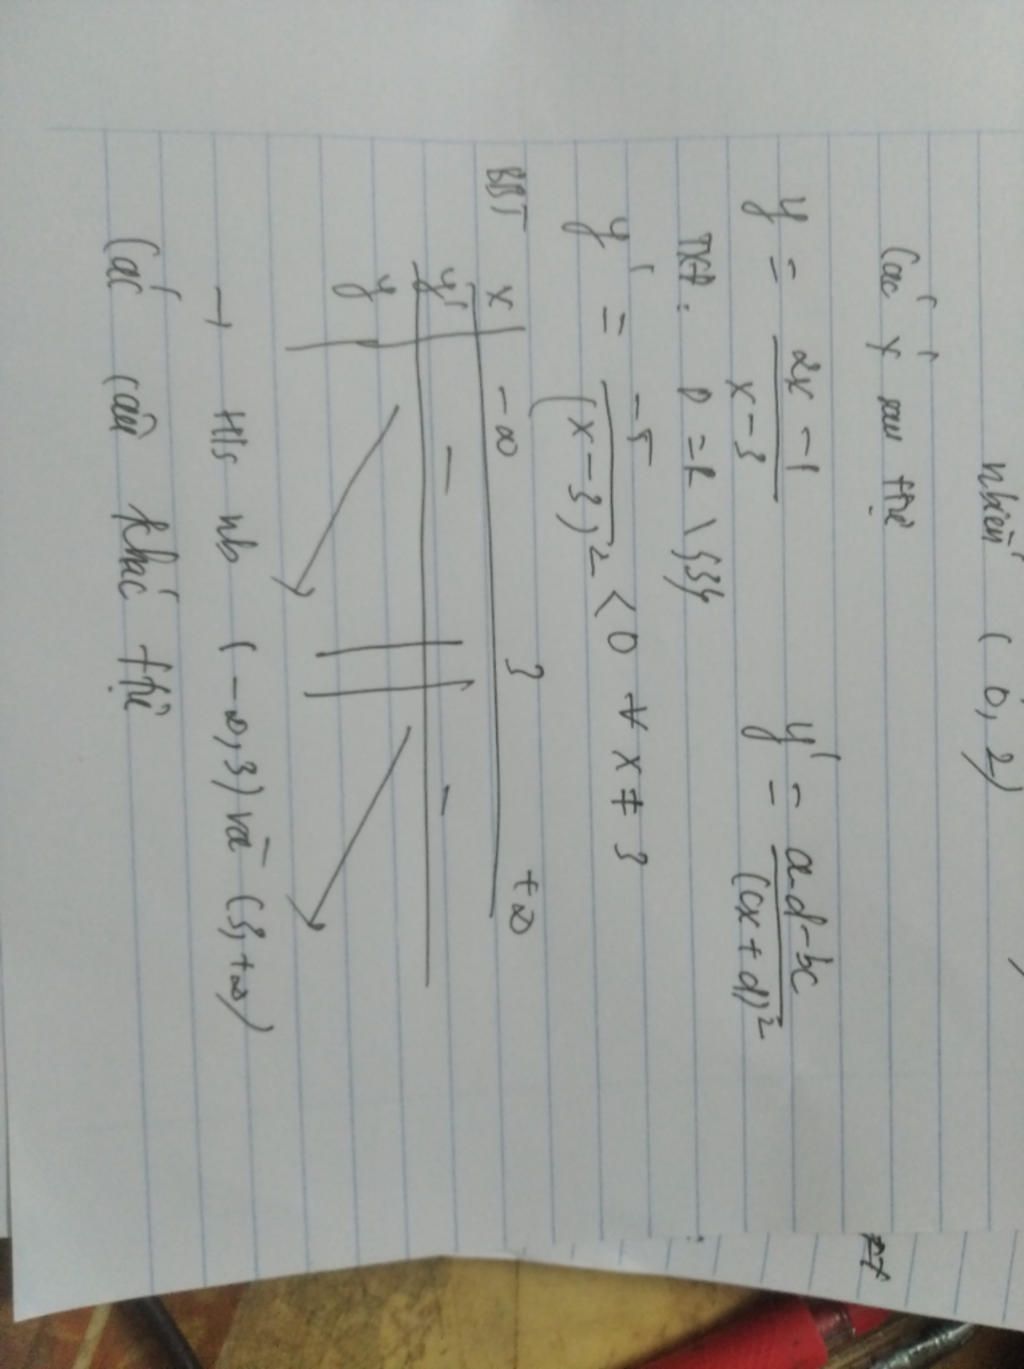 nhiên ( 0, 2)
Các ý sau ttự
y = 2x - 1 / x - 3 y' = ad - bc / (cx + d)²
TXĐ: D = R \ {3}
y' = -5 / (x - 3)² < 0 ∀ x ≠ 3
BBT x -∞ 3 +∞
y' - -
y
→ H/s nb (-∞, 3) và (3, +∞)
Các câu khác ttự